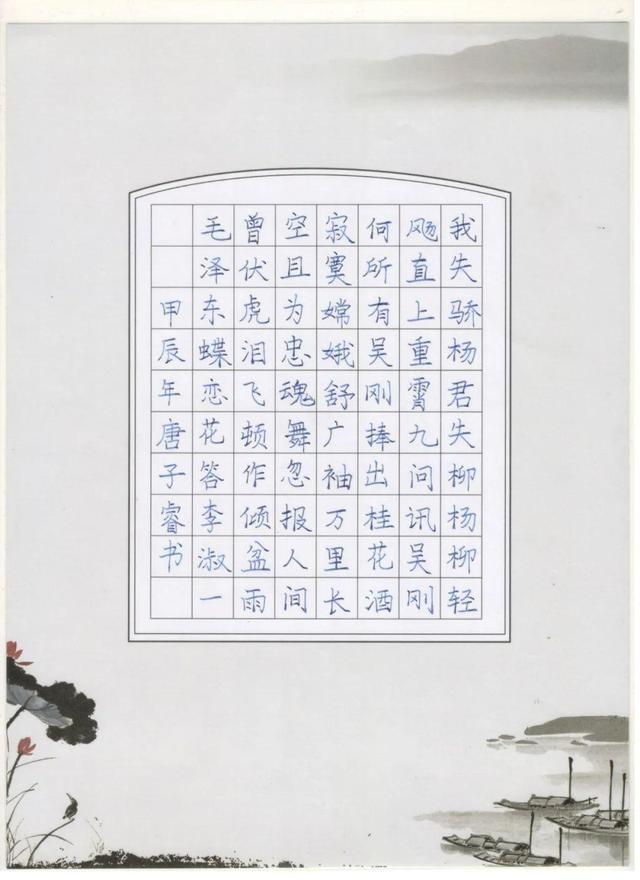 我失骄杨君失柳杨柳轻
飏直上重霄九问讯吴刚
何所有吴刚捧出桂花酒
寂寞嫦娥舒广袖万里长
空且为忠魂舞忽报人间
曾伏虎泪飞顿作倾盆雨
毛泽东蝶恋花答李淑一
甲辰年唐子睿书